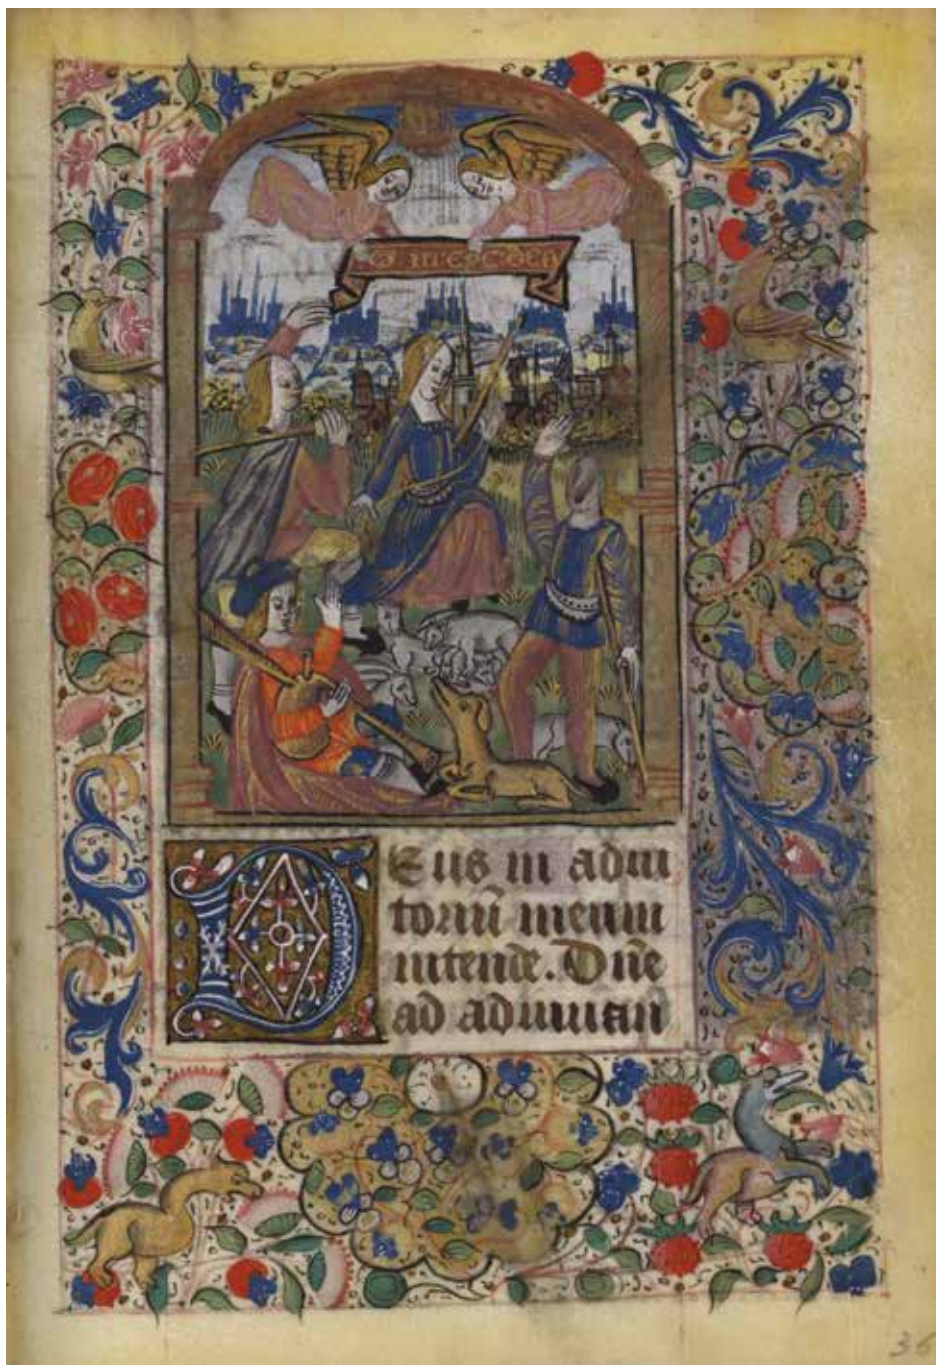 Deus in adiu
toriū meum
intende. Dñe
ad adiuuan
36